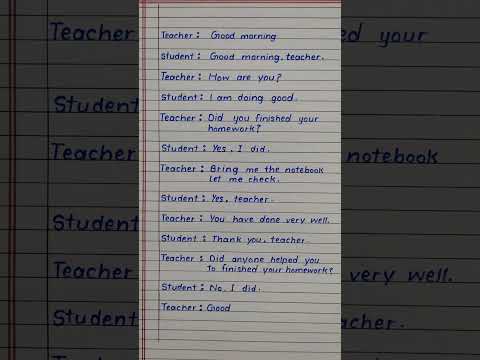 Teacher: Good morning
Student: Good morning, teacher.
Teacher: How are you?
Student: I am doing good.
Teacher: Did you finished your
homework?
Student: Yes, I did.
Teacher: Bring me the notebook
Let me check.
Student: Yes, teacher.
Teacher: You have done very well.
Student: Thank you, teacher.
Teacher: Did anyone helped you
to finished your homework?
Student: No, I did.
Teacher: Good